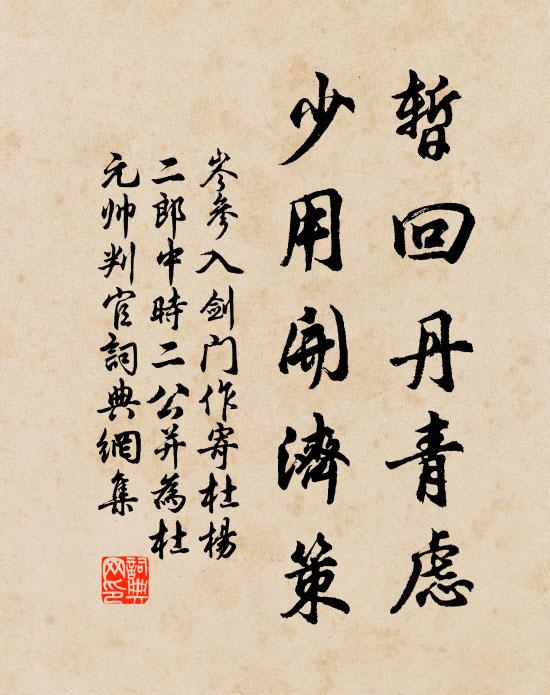 暂回丹青虑
少用开济策
岑参入剑门作寄杜杨
二郎中时二公并为杜
元帅判官词典网集
词典网印